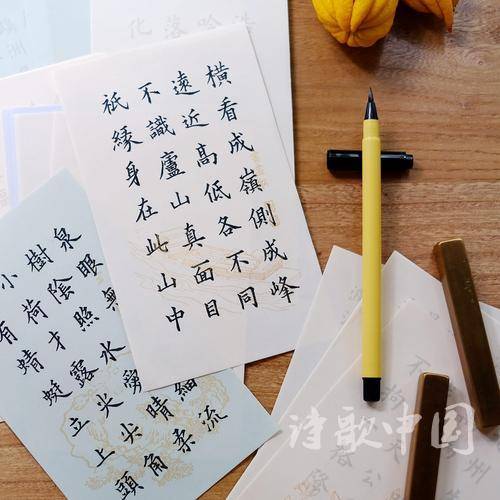 横看成嶺側成峰
遠近高低各不同
不識廬山真面目
祇緣身在此山中
泉眼無細流
樹陰照水愛晴柔
小荷才露尖尖角
有蜻蜓立上頭
浩
吟
落
化
州
不拘
公
诗歌中国